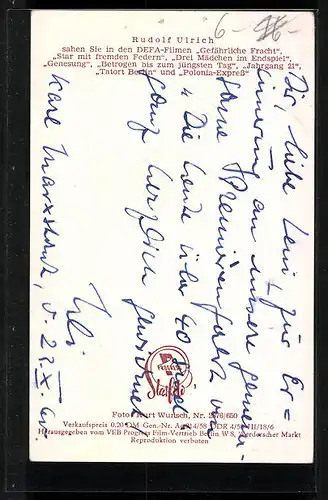 6.-
Rudolf Ulrich
sahen Sie in den DEFA-Filmen „Gefährliche Fracht“,
„Star mit fremden Federn“, „Drei Mädchen im Endspiel“,
„Genesung“, „Betrogen bis zum jüngsten Tag“, „Jahrgang 21“,
„Tatort Berlin“ und „Polonia-Expreß“
Dir, liebe zur Er=
innerung an unsere gemein-
same Premierenfahrt von
„Die Leute über 40
ganz herzlich gewidmet
Uli
Karl Marxstadt, d. 23.X. 60.
PROGRESS
Starfoto
Foto: Kurt Wunsch, Nr. 2676/650
Verkaufspreis 0.20 DM Gen.-Nr. A 814/58 DDR 4/58 III/18/6
Herausgegeben vom VEB Progress Film-Vertrieb Berlin W 8, Werderscher Markt
Reproduktion verboten